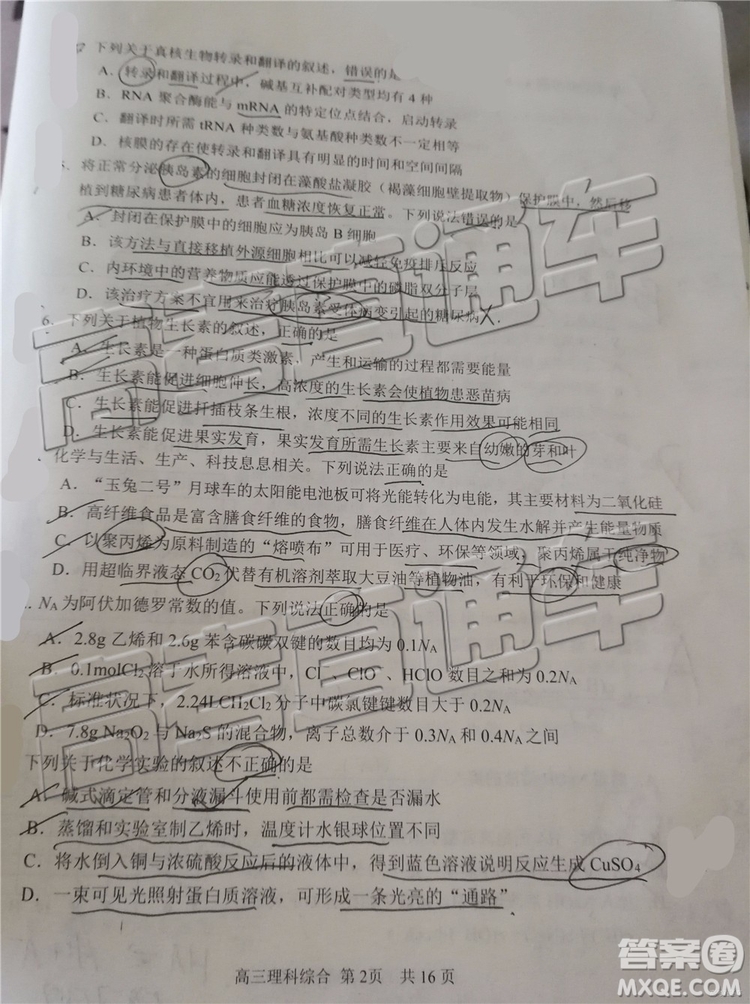 下列关于真核生物转录和翻译的叙述，错误的是
A．转录和翻译过程中，碱基互补配对类型均有 4 种
B．RNA 聚合酶能与 mRNA 的特定位点结合，启动转录
C．翻译时所需 tRNA 种类数与氨基酸种类数不一定相等
D．核膜的存在使转录和翻译具有明显的时间和空间间隔
将正常分泌胰岛素的细胞封闭在藻酸盐凝胶（褐藻细胞壁提取物）保护膜中，然后移
植到糖尿病患者体内，患者血糖浓度恢复正常。下列说法错误的是
A．封闭在保护膜中的细胞应为胰岛 B 细胞
B．该方法与直接移植外源细胞相比可以减轻免疫排斥反应
C．内环境中的营养物质应能透过保护膜中的磷脂双分子层
D．该治疗方案不宜用来治疗胰岛素受体病变引起的糖尿病
6．下列关于植物生长素的叙述，正确的是
A．生长素是一种蛋白质类激素，产生和运输的过程都需要能量
B．生长素能促进细胞伸长，高浓度的生长素会使植物患恶苗病
C．生长素能促进扦插枝条生根，浓度不同的生长素作用效果可能相同
D．生长素能促进果实发育，果实发育所需生长素主要来自幼嫩的芽和叶
．化学与生活、生产、科技息息相关。下列说法正确的是
A．“玉兔二号”月球车的太阳能电池板可将光能转化为电能，其主要材料为二氧化硅
B．高纤维食品是富含膳食纤维的食物，膳食纤维在人体内发生水解并产生能量物质
C．以聚丙烯为原料制造的“熔喷布”可用于医疗、环保等领域，聚丙烯属于纯净物
D．用超临界液态 CO2 代替有机溶剂萃取大豆油等植物油，有利于环保和健康
．NA 为阿伏加德罗常数的值。下列说法正确的是
A．2.8g 乙烯和 2.6g 苯含碳碳双键的数目均为 0.1NA
B．0.1molCl2 溶于水所得溶液中，Cl⁻、ClO⁻、HClO 数目之和为 0.2NA
C．标准状况下，2.24LCH2Cl2 分子中碳氯键键数目大于 0.2NA
D．7.8g Na2O2 与 Na2S 的混合物，离子总数介于 0.3NA 和 0.4NA 之间
下列关于化学实验的叙述不正确的是
A．碱式滴定管和分液漏斗使用前都需检查是否漏水
B．蒸馏和实验室制乙烯时，温度计水银球位置不同
C．将水倒入铜与浓硫酸反应后的液体中，得到蓝色溶液说明反应生成 CuSO4
D．一束可见光照射蛋白质溶液，可形成一条光亮的“通路”
高三理科综合 第 2页 共 16 页
高考直通车
高考直通车
高考直通车
答案圈
MXQE.COM